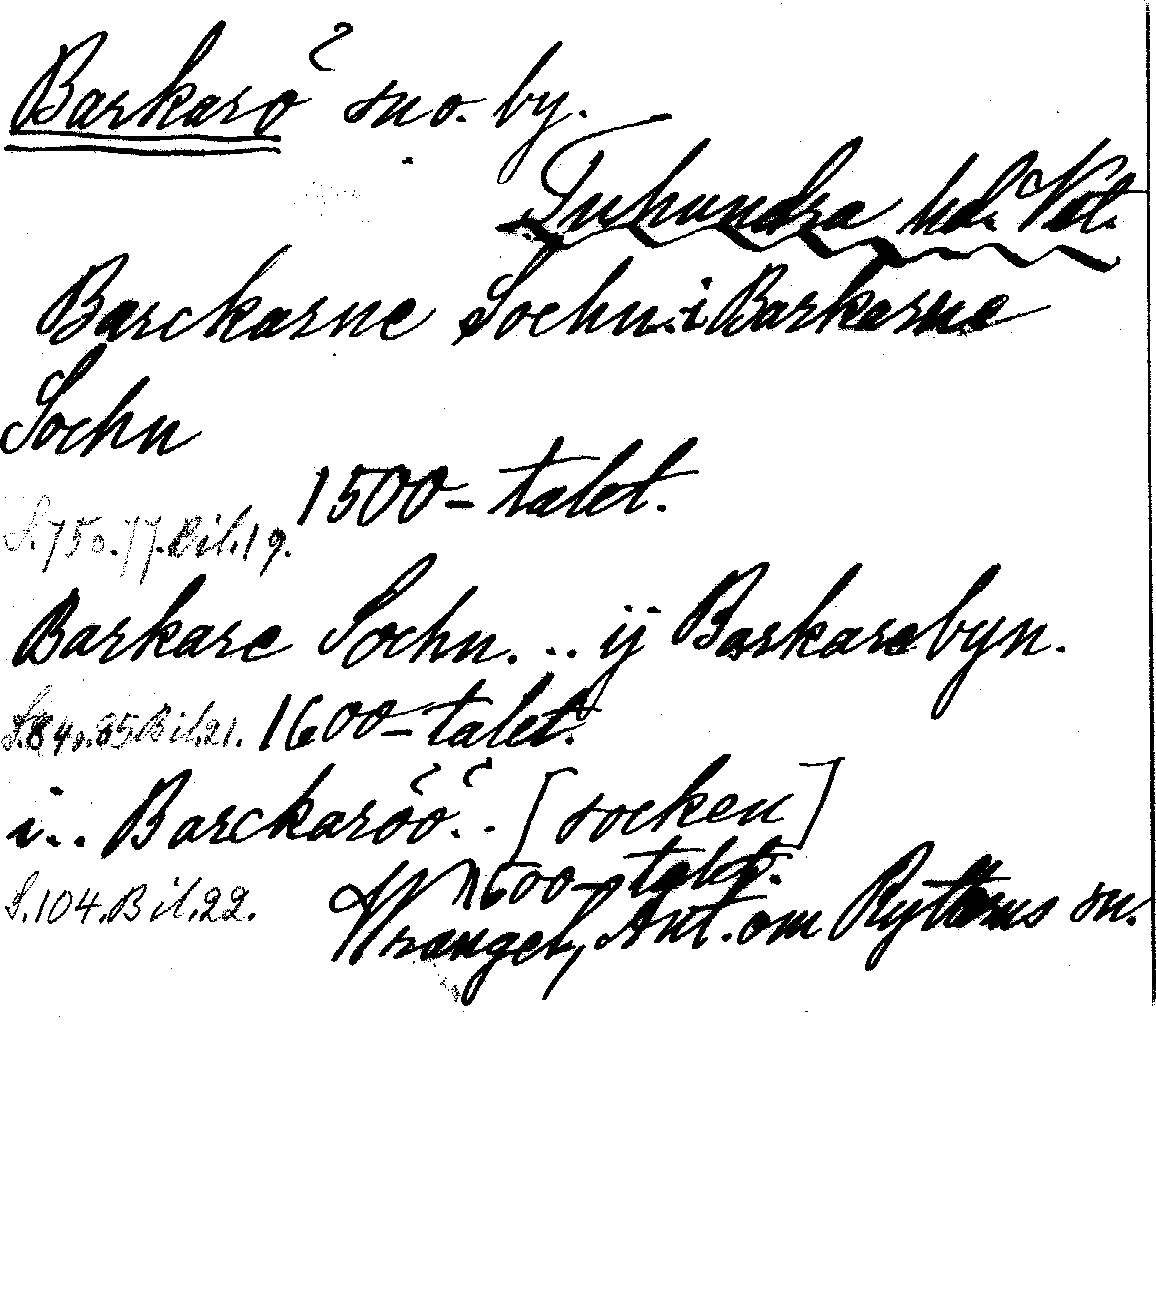 Barkarö sn o. by.
Tuhundra hd. Vstl.
Barckarne Sochn. i Barkarne
Sochn
1500-talet.
S. 75 o. 77. Bil. 19.
Barkare Sochn. .. ij Barkarebyn.
S. 84 o. 85 Bil. 21. 1600-talet.
i.. Barckaröö.. [socken]
1600-talet.
S. 104. Bil. 22. Wrangel, Ant. om Rytterns sn.